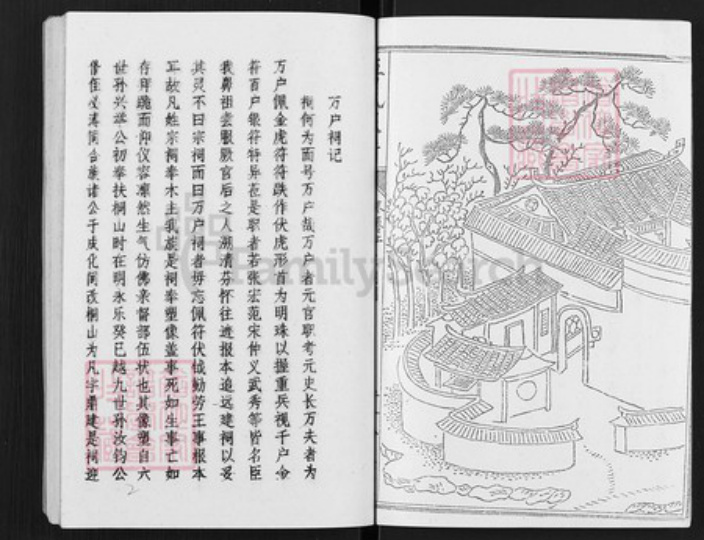 万户祠记
祠何为而号万户哉万户者元官职考元史长万夫者为
万户佩金虎符符趺作伏虎形首为明珠以握重兵视千户金
符百户银符特异在是职者若张宏范宋仲义武秀等皆名臣
我鼻祖尝服厥官后之人溯清芬怀往迹报本追远建祠以妥
其灵不曰宗祠而曰万户祠者毋忘佩符伏钺勋劳王事根本
耳故凡姓宗祠奉木主我族是祠奉塑像盖事死如生事亡如
存拜跪而仰仪容凛然生气仿佛亲督部伍状也其像塑自六
世孙兴举公初奉扶桐山时在明永乐癸巳越九世孙汝钧公
偕侄必溥同合族诸公于成化间改桐山为凡字肃建是祠迎
FamilySearch
2